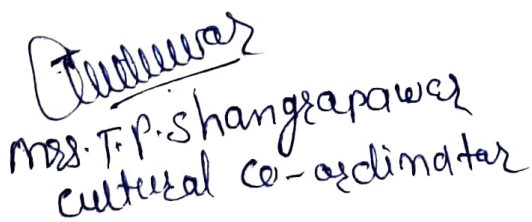 Mrs. T.P. Shangrapawar
Cultural Co-ordinator